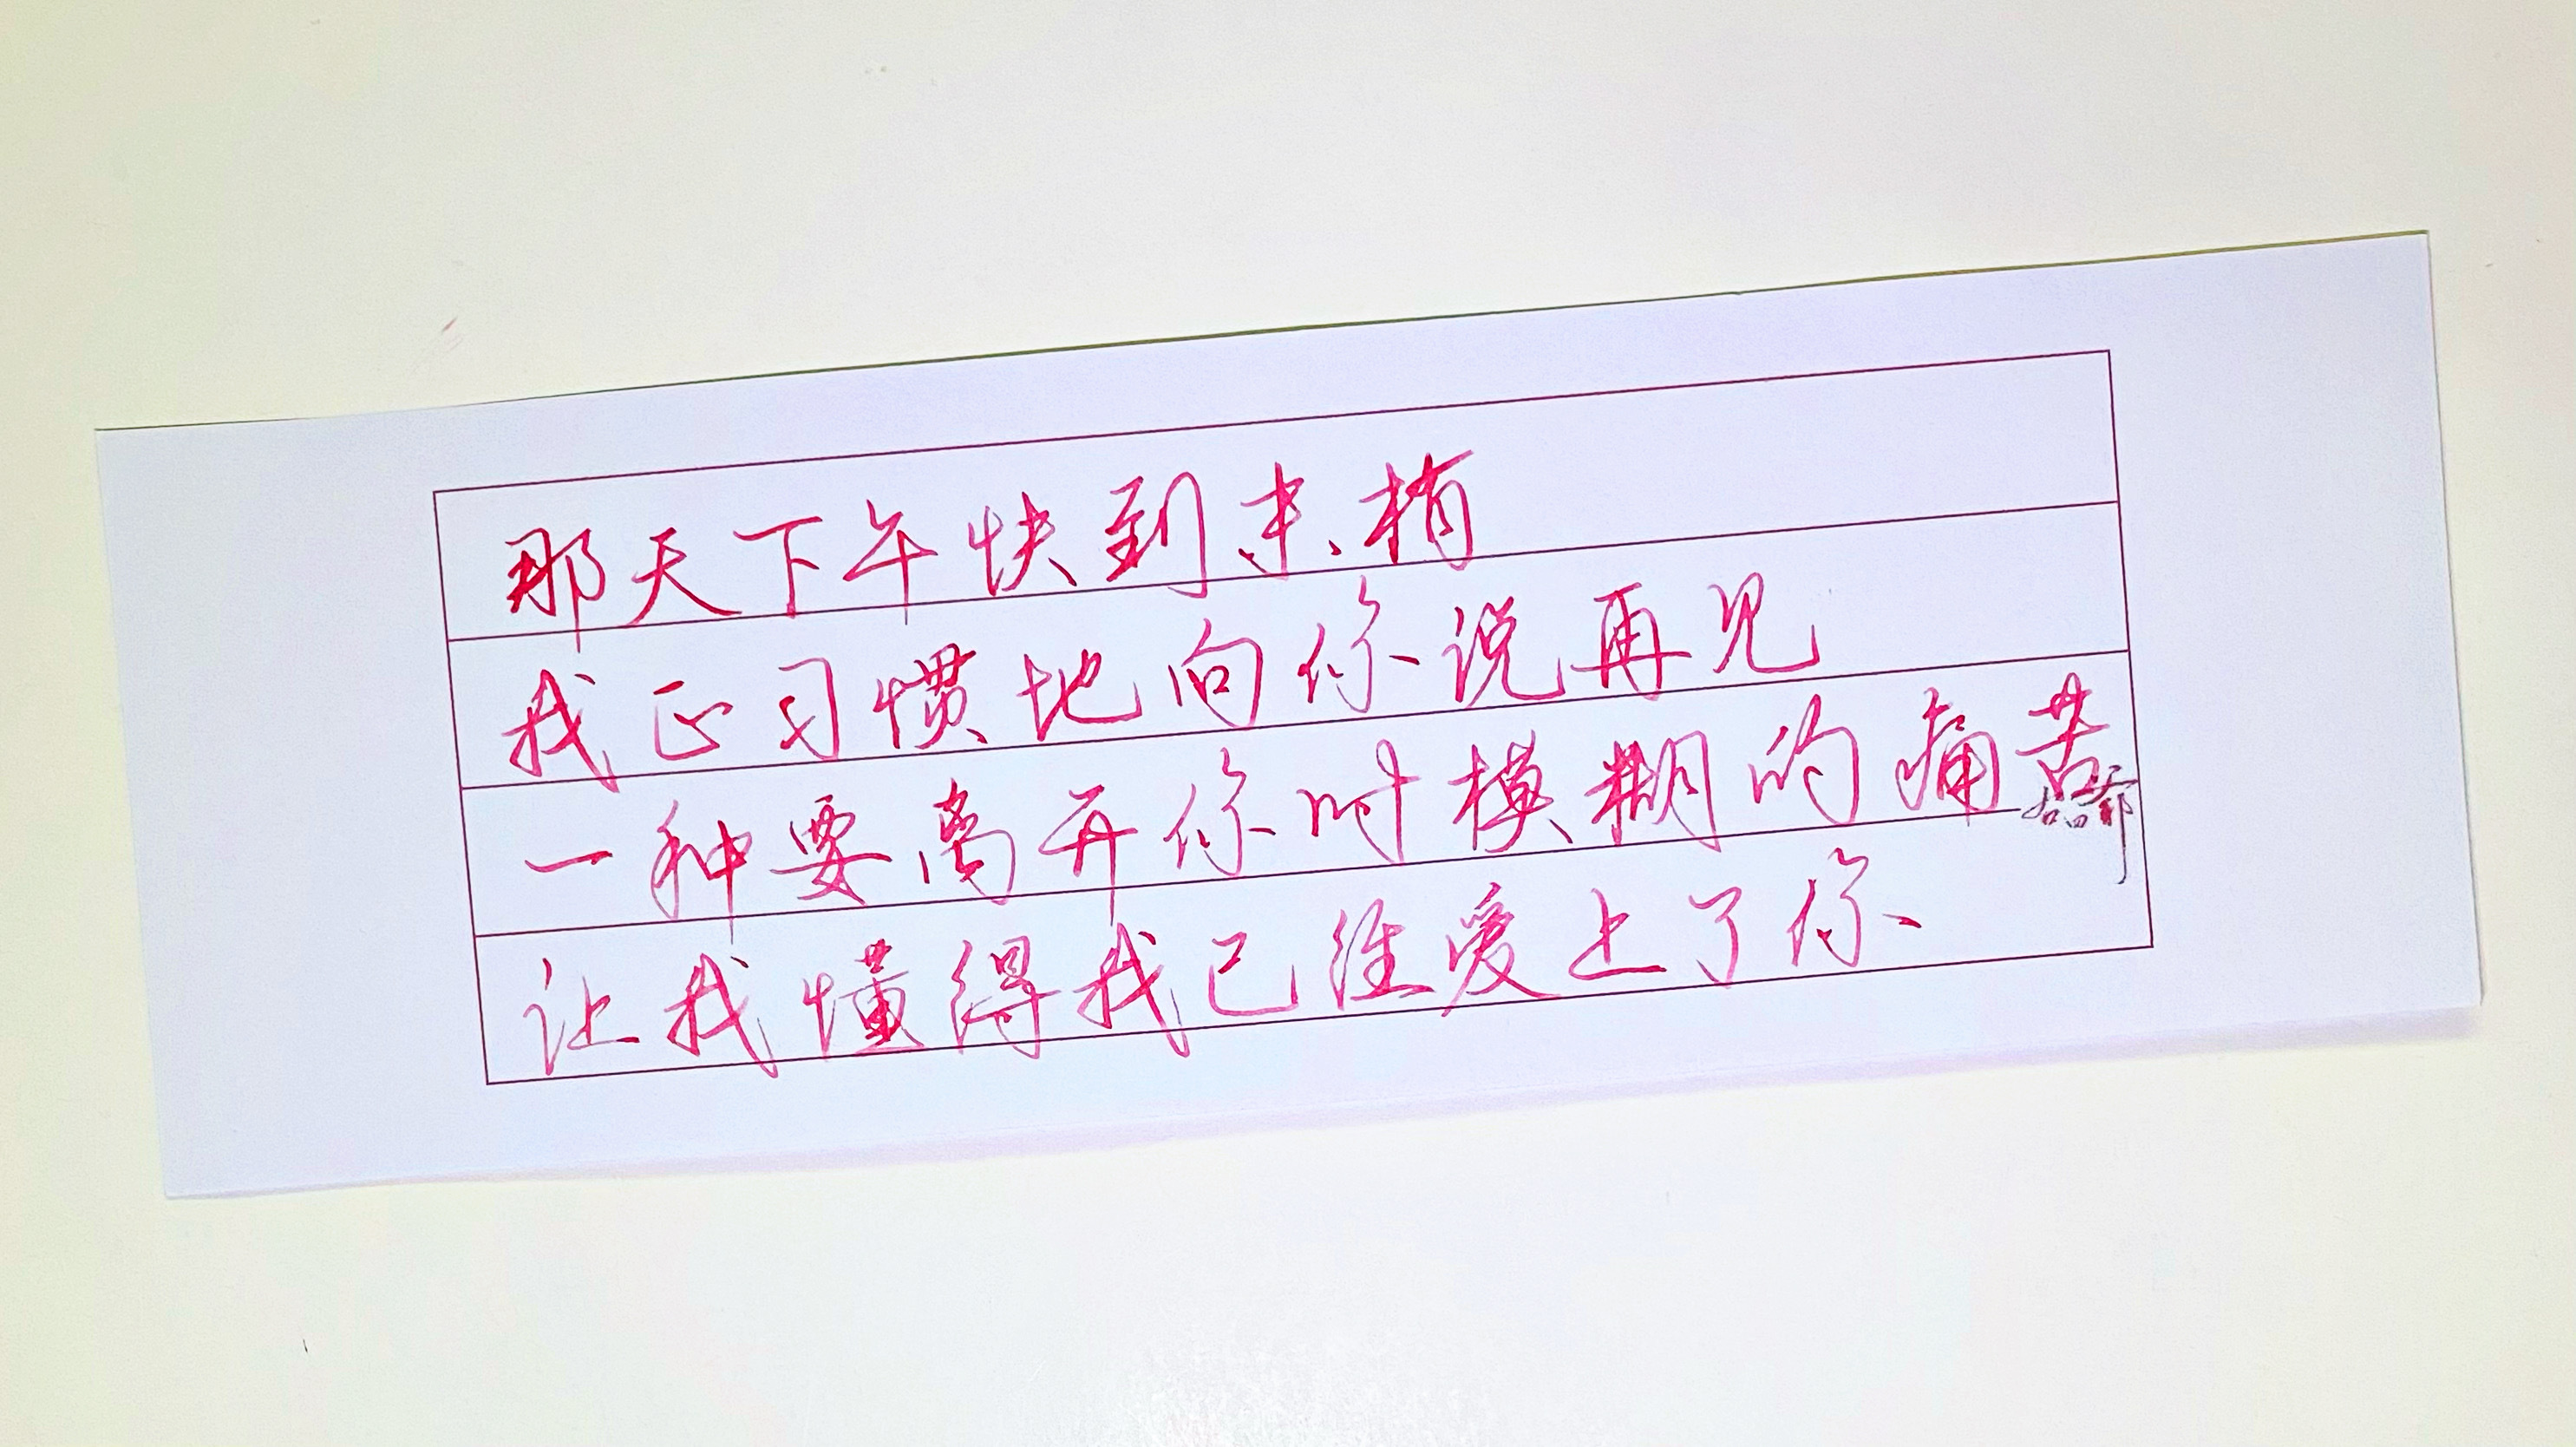 那天下午快到末梢
我正习惯地向你说再见
一种要离开你时模糊的痛苦
让我懂得我已经爱上了你